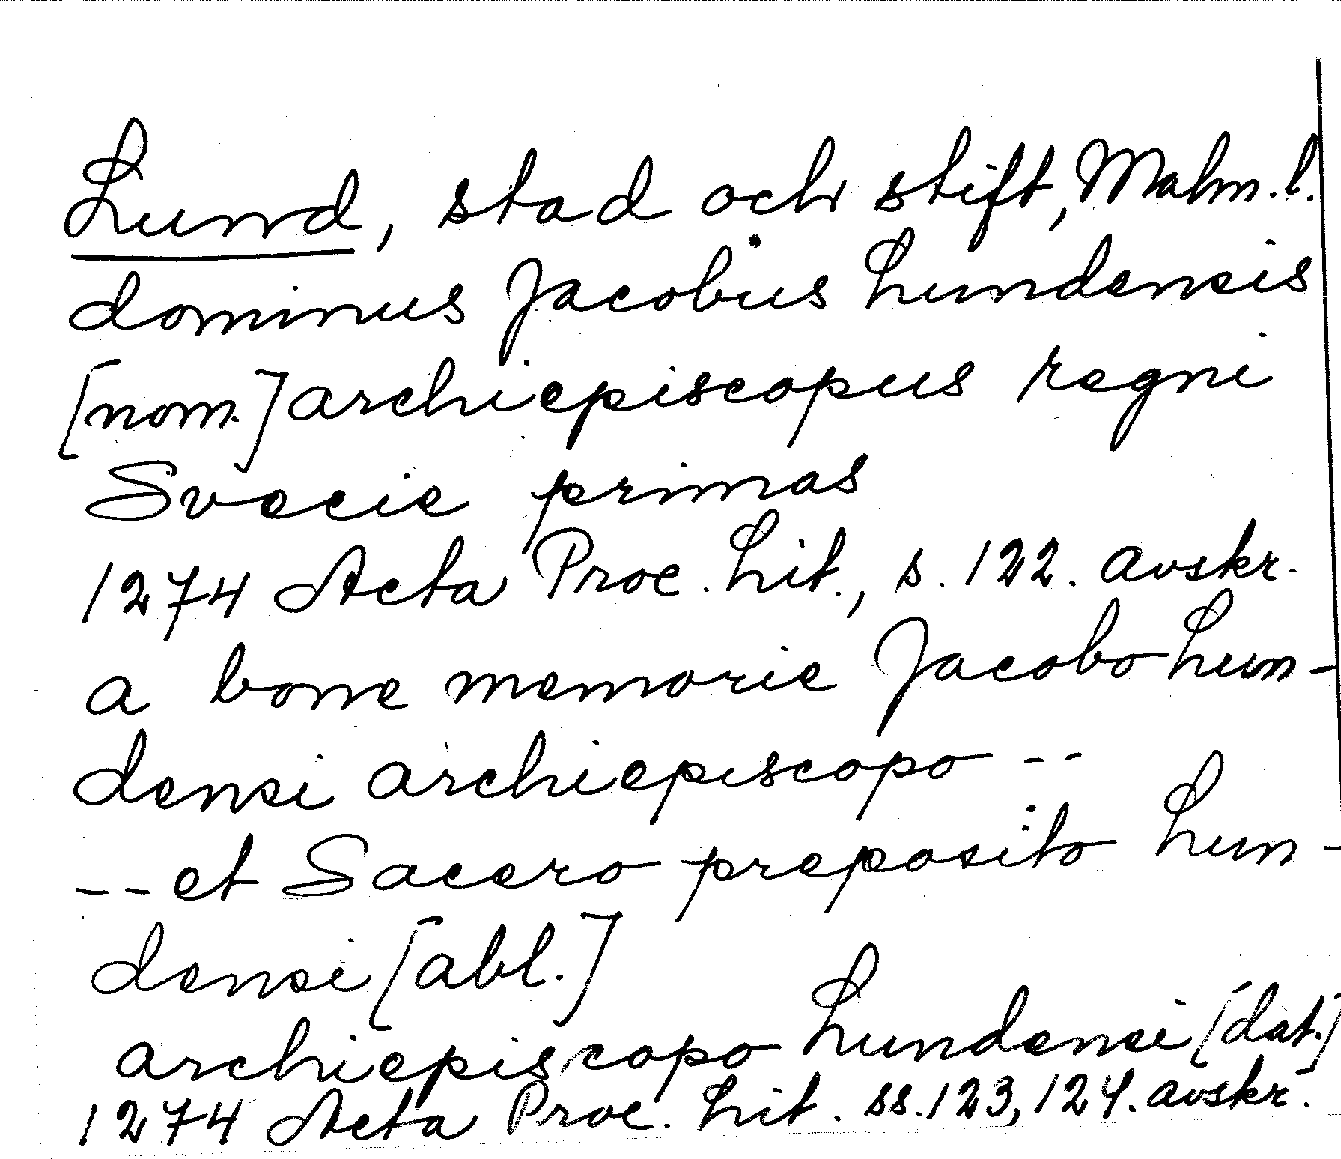 Lund, stad och stift, Malm. l.
dominus Jacobus Lundensis
[nom.] archiepiscopus regni
Svecie primas
1274 Acta Proc. Lit., s. 122. avskr.
a bone memorie Jacobo Lun-
densi archiepiscopo --
-- et Sacero preposito Lun-
densi [abl.]
archiepiscopo Lundensi [dat.]
1274 Acta Proc. Lit. ss. 123, 124. avskr.